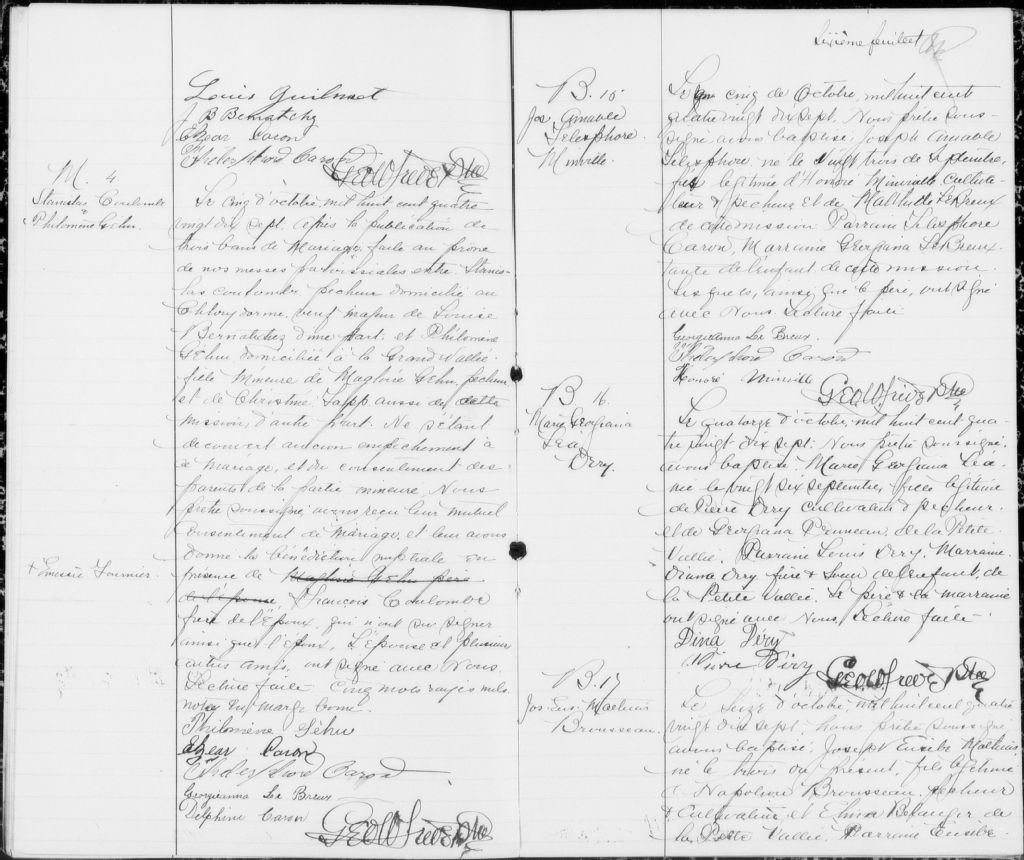 Louis Guilmet
J B Bernatchy
Elzear Caron
Thelesphord Caron
Geo W Frève Ptre
M. 4
Stanislas Coulombe
&
Philomène Gehu.
Le cinq d'octobre, mil huit cent quatre
vingt dix sept. après la publication de
trois bans de Mariage faite au prône
de nos messes paroissiales entre. Stanis-
las coulombe pecheur domicilié au
Chlorydorme, veuf majeur de Louise
Bernatchez d'une part. et Philomène
Gehu domiciliée à la Grand Vallée
fille Mineure de Magloire Gehu, pecheur
et de Christine aussi de cette
mission, d'autre part. Ne s'étant
decouvert aucun empêchement à
ce Mariage, et du consentement des
parents de la partie mineure, Nous
prêtre soussigné, avons reçu leur mutuel
consentement de Mariage, et leur avons
donné la bénédiction nuptiale en
+ Fournier.
présence de Magloire Gehu père
de l'epouse François Coulombe
frère de l'Époux, qui n'ont su signer
ainsi que l'époux. L'épouse et plusieurs
autres amis, ont signé avec Nous.
Lecture faite. Cinq mots rayés nuls.
en marge bonne.
Philomène Géhu
Elzear Caron
Thelesphord Caron
Georgieanna Le Breux
Delphine Caron
Geo W Frève Ptre
Sixième feuillet
B. 15
Jos. Amable
Telesphore
Minville.
Le cinq de Octobre, mil huit cent
quatre vingt dix sept. Nous prêtre sous-
signé avons baptisé Joseph Amable
Telesphore né le vingt trois de septembre,
fils légitime d'Honoré Minville Cultiva-
teur & pecheur et de Mathilde LeBreux
de cette mission Parrain Telesphore
Caron, Marraine Georgiana LeBreux
tante de l'enfant de cette mission.
Lesquels, ainsi que le père, ont signé
avec Nous. Lecture faite
Georgieanna Le Breux
Thelesphord Caron
Honoré Minville
Geo W Frève Ptre
B 16.
Marie Georgiana
Lea
Dery.
Le quatorze d'octobre, mil huit cent qua-
tre vingt dix sept. Nous prêtre soussigné,
avons baptisé. Marie Georgiana Lea
née le vingt six septembre, fille légitime
de Pierre Dery cultivateur & pecheur.
et de Georgiana de la Petite
Vallée. Parrain Louis Dery. Marraine
Diana Dery frère & soeur de l'enfant, de
la Petite Vallée. Le père & la marraine
ont signé avec Nous, Lecture faite
Dina Déry
Pierre Déry
Geo W. Frève Ptre
B. 17
Jos. Eus. Mathias
Brousseau.
Le Seize d'octobre, mil huit cent quatre
vingt dix sept. Nous prêtre soussigné
avons baptisé. Joseph Eusèbe Mathias,
né le trois du présent, fils légitime
de Napoléon Brousseau, pecheur
& Cultivateur, et Elma Belanger de
la Petite Vallée. Parrain Eusèbe